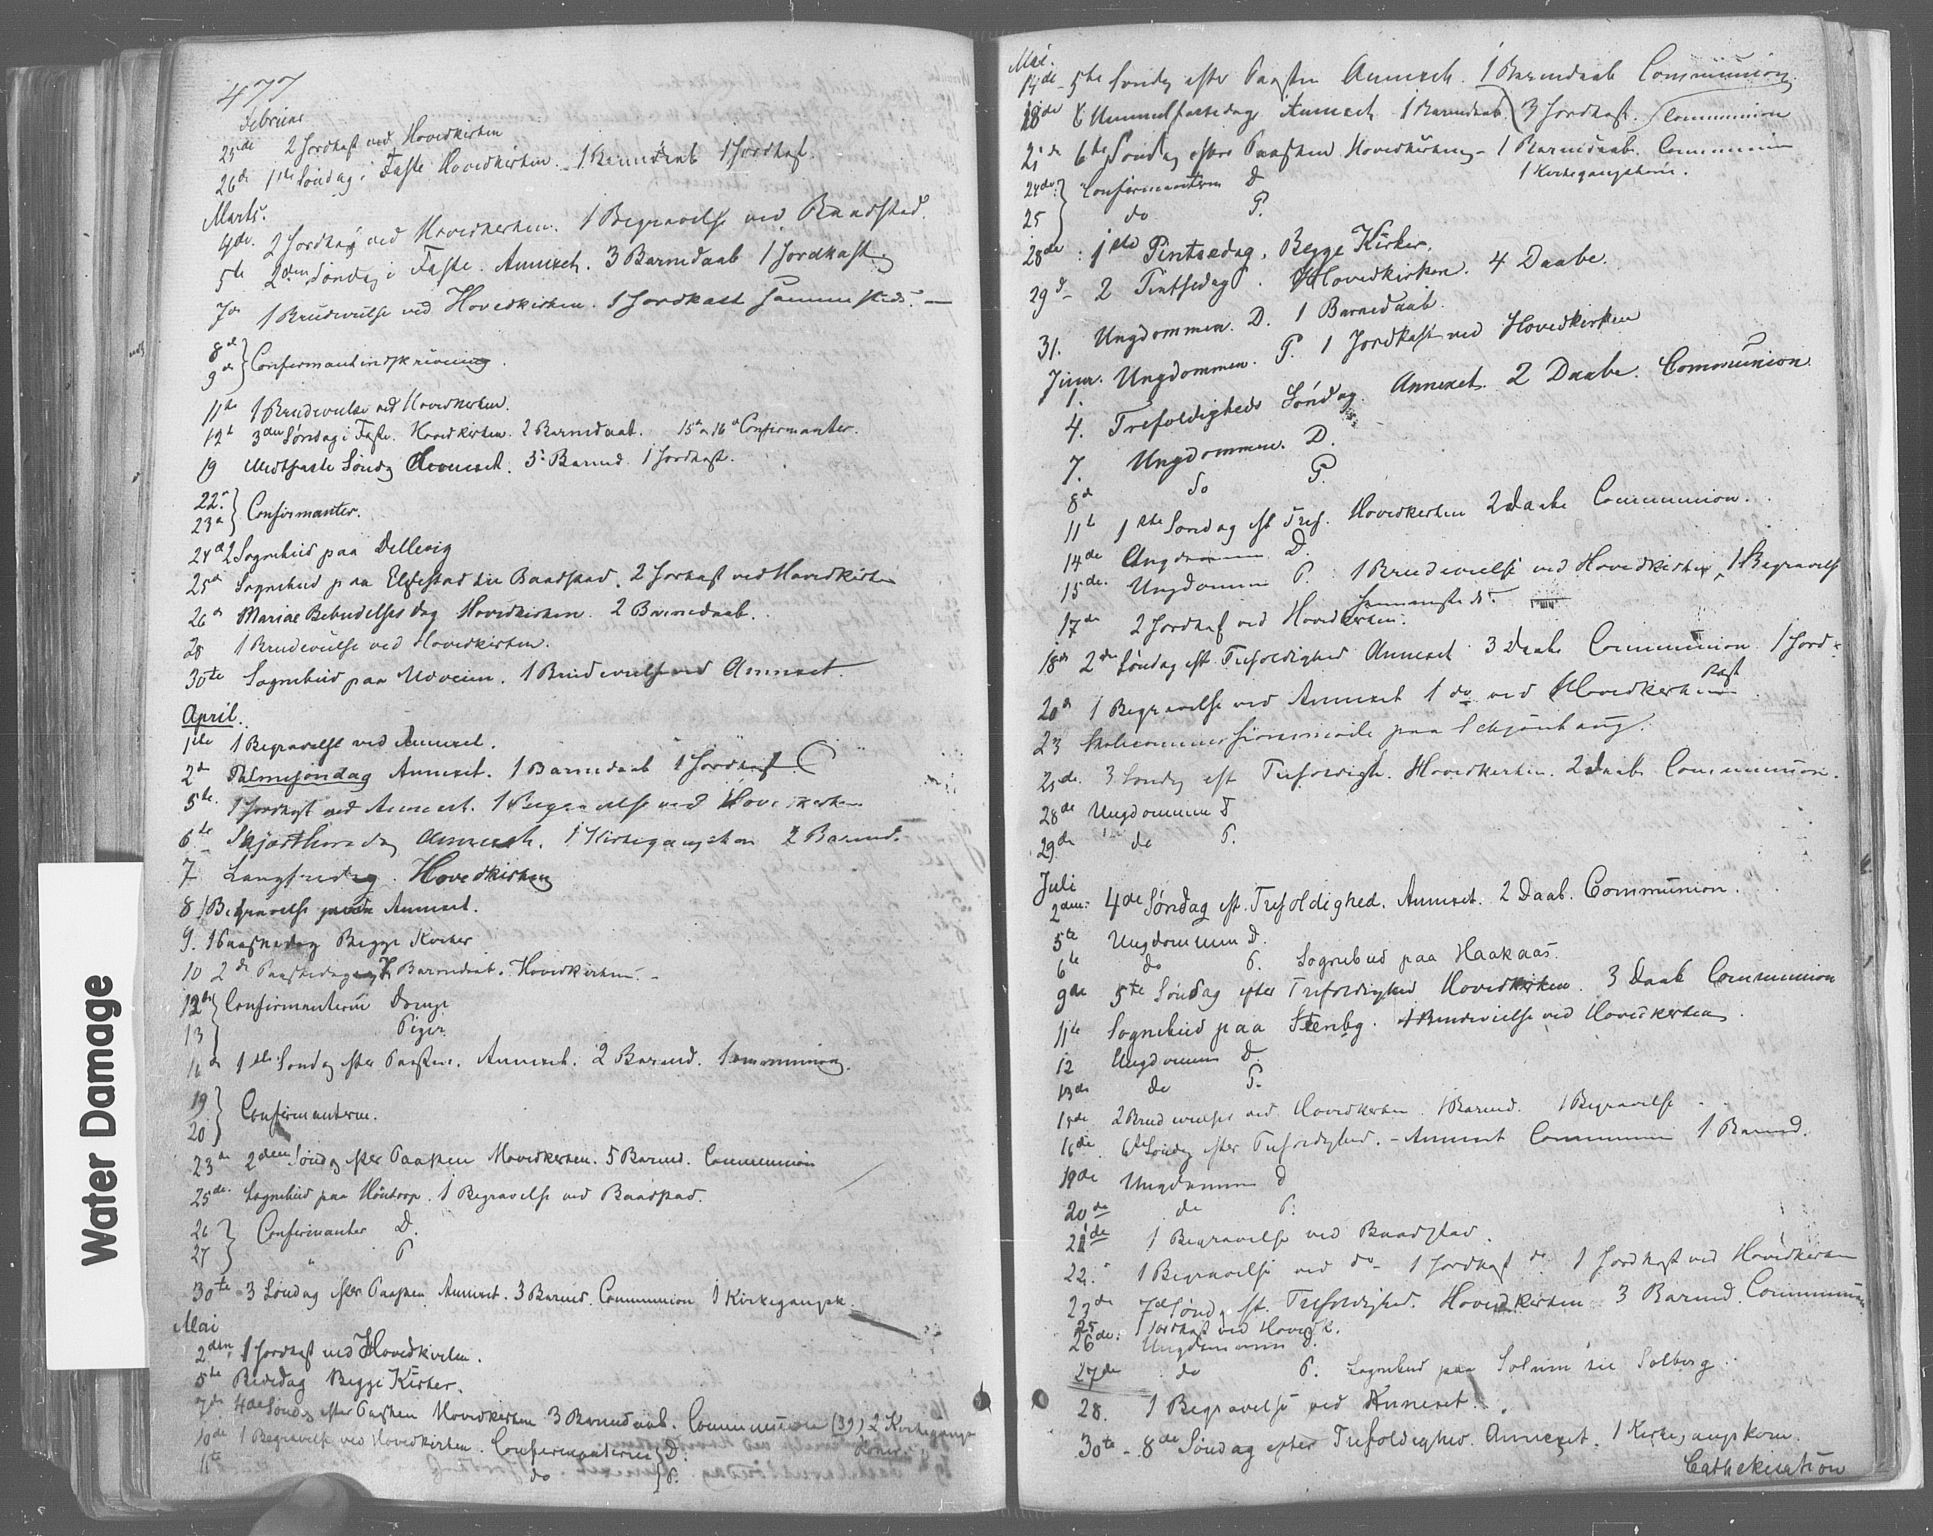 477
Februar
25de 2 Jordkast ved Hovedkirken
26de 1ste Søndag i Faste Hovedkirken. 1 Barnedaab 1 Jordkast.
Marts.
4de. 2 Jordkast ved Hovedkirken. 1 Begravelse ved Baadstad.
5te 2den Søndag i Faste. Annexet. 3 Barnedaab 1 Jordkast.
7de 1 Brudevielse ved Hovedkirken. 1 Jordkast sammesteds. —
8de
9de } Confirmantindskrivning.
11te 1 Brudevielse ved Hovedkirken.
12te 3den Søndag i Faste. Hovedkirken. 2 Barnedaab. 15de 16de Confirmanter.
19 Midtfaste Søndag Annexet. 3 Barned. 1 Jordkast.
22de
23de } Confirmanter.
24de 2 Sognebud paa Dellevig
25de Sognebud paa Elgestad til Baadstad. 2 Jordkast ved Hovedkirken
26de Mariae Bebudelses dag Hovedkirken. 2 Barnedaab.
28 1 Brudevielse ved Hovedkirken.
30te Sognebud paa Udveien. 1 Brudevielse ved Annexet.
April.
1ste 1 Begravelse ved Annexet.
2de Palmesøndag Annexet. 1 Barnedaab 1 Jordkast. C
5te. 1 Jordkast ved Annexet. 1 Begravelse ved Hovedkirken
6te Skjærthorsdag Annexet. 1 Kirkegangskon 2 Barned.
7 Langfredag. Hovedkirken
8 1 Begravelse Annexet.
9. 1 Paaskedag Begge Kirker
10 2de Paaskedag 7 Barnedaab. Hovedkirken. -
12de } Confirmanterne Drenge
13 } Piger.
16de 1ste Søndag efter Paasken. Annexet. 2 Barned. Communion.
19
20 } Confirmanterne.
23de 2den Søndag efter Paasken Hovedkirken. 5 Barned. Communion
25de. Sognebud paa Huntorp. 1 Begravelse ved Baadstad.
26 } Confirmanter D.
27 } " P
30te 3 Søndag efter Paasken Annexet. 3 Barned. Communion 1 Kirkegangsk.
Mai
2den 1 Jordkast ved Hovedkirken.
5te Bededag Begge Kirker.
7de 4de Søndag efter Paasken Hovedkirken 3 Barnedaab. Communion (39) 2 Kirkegangs
10de 1 Begravelse ved Hovedkirken. Confirmanterne D. Koner.
11te do P.
Mai.
14de - 5te Søndag efter Paasken Annexet. 1 Barnedaab Communion.
18de Chr. Himmelfartsdag Annexet 1 Barnedaab. 3 Jordkast. Communion
21de 6te Søndag efter Paasken Hovedkirken - 1 Barnedaab. Communion
1 Kirkegangskone.
24de } Confirmanterne D
25 } do P.
28de : 1ste Pintsedag. Begge Kirker.
29de - 2 Pintsedag. Hovedkirken. 4 Daabe.
31. Ungdommen. D. 1 Barnedaab.
Juni.
1. Ungdommen. P. 1 Jordkast ved Hovedkirken
4. Trefoldigheds Søndag. Annexet. 2 Daabe. Communion.
7. Ungdommen. D.
8de do P.
11te 1ste Søndag eft Tref. Hovedkirken 2 Daabe Communion.
14de Ungdommen D.
15de. Ungdommen P. 1 Brudevielse ved Hovedkirken, 1 Begravelse
sammesteds.
17de 2 Jordkast ved Hovedkirken.
18de 2de Søndag eft. Trefoldighed Annexet 3 Daabe Communion 1 Jord-
kast
20de 1 Begravelse ved Annexet 1 do ved Hovedkirken
23 Skolecommissionsmøde paa Schjønhaug.
25de. 3 Søndag eft Trefoldigh. Hovedkirken. 2 Daabe Communion.
28de Ungdommen D
29de do P.
Juli
2den: 4de Søndag eft. Trefoldighed. Annexet. 2 Daab. Communion.
5te Ungdommen D.
6te do P. Sognebud paa Haakaas.
9de 5te Søndag efter Trefoldighed Hovedkirken. 3 Daab Communion
11te Sognebud paa Stenbg. 1 Brudevielse ved Hovedkirken.
12 Ungdommen D.
13de do P.
15de 2 Brudevielser ved Hovedkirken. 1 Barned. 1 Begravelse -
16de. 6te Søndag efter Trefoldighed. - Annexet Communion 1 Barned.
19de Ungdommen D
20de do P.
21de 1 Begravelse ved Baadstad.
22. 1 Begravelse ved do - 1 Jordkast do 1 Jordkast ved Hovedkirken
23de 7de Søndag eft. Trefoldighed. Hovedkirken 3 Barned. Communion
25 1 Jordkast ved Hovedk.
26de: Ungdommen D.
27de do P. Sognebud paa Solum til Solberg.
28. 1 Begravelse ved Annexet.
30te - 8de Søndag efter Trefoldighed. Annexet. 1 Kirkegangskone.
Cathekisation
Water Damage